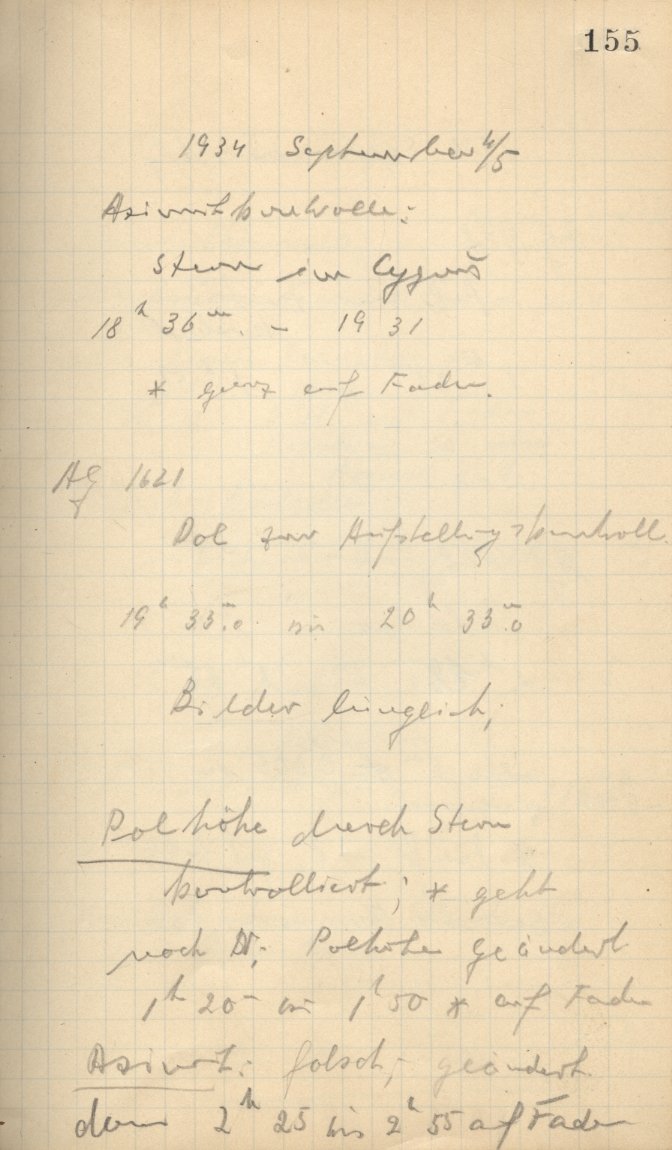 155
1934 September 4/5
Azimutkontrolle:
Stern im Cygnus
18ʰ 36ᵐ. – 19 31
* ganz auf Faden.
AG 1621
Pol zur Aufstellungskontroll
19ʰ 33ᵐ.0 bis 20ʰ 33ᵐ.0
Bilder länglich;
Polhöhe durch Stern
kontrolliert; * geht
nach N; Polhöhe geändert
1ʰ 20ᵐ bis 1ʰ 50 * auf Faden
Azimut: falsch; geändert
dann 2ʰ 25 bis 2ʰ 55 auf Faden